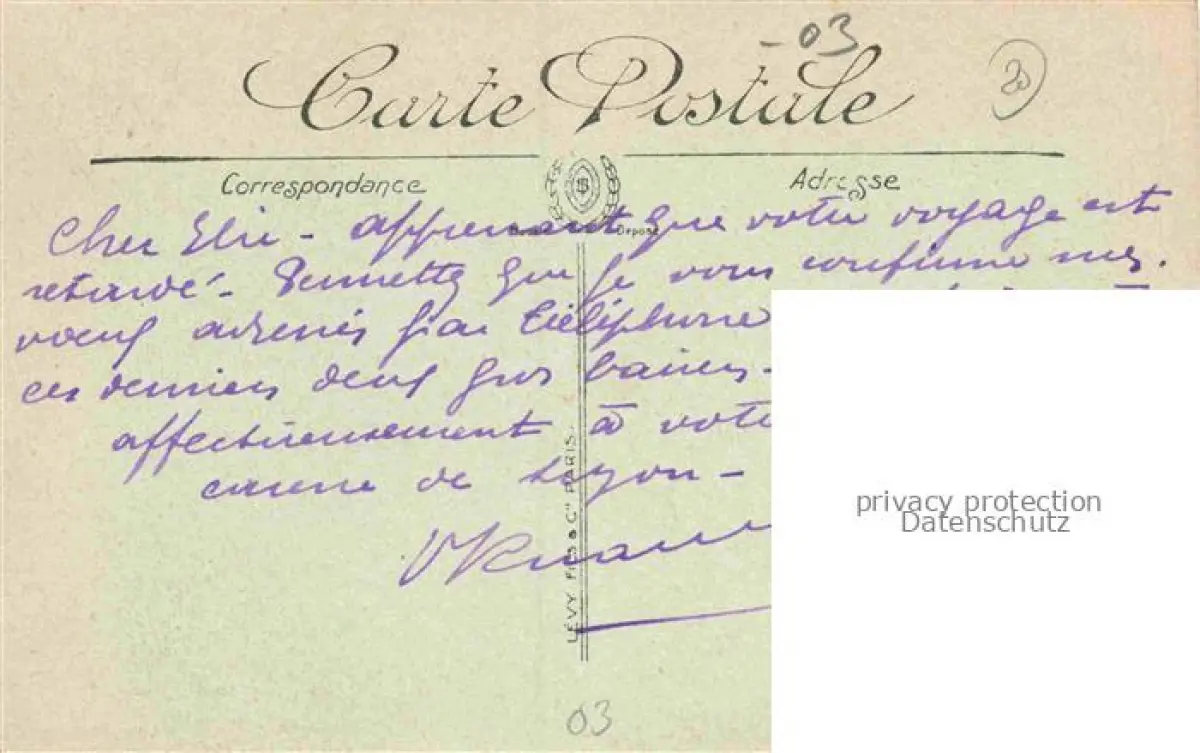 - 03
20
Carte Postale
Correspondance
Adresse
Déposé
Cher Elie - apprenant que votre voyage est
retardé - Permettez que je vous confirme mes
vœux adressés par téléphone
ces derniers deux gros baisers -
affectueusement à votre
de Lyon -
LÉVY Fils & Cie PARIS
03
privacy protection
Datenschutz